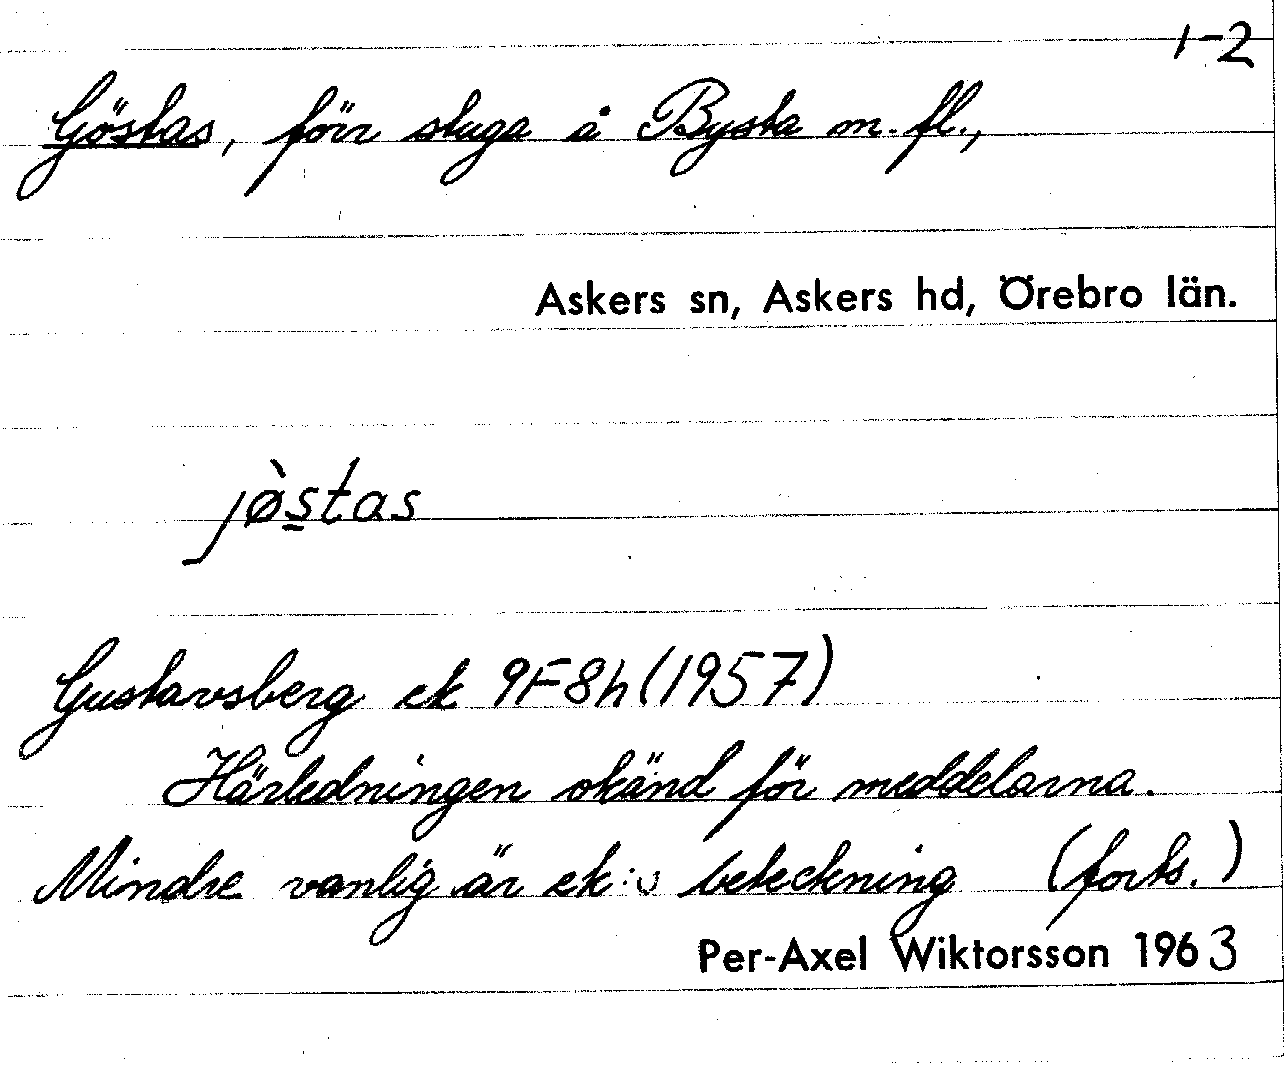 1-2
Göstas, förr stuga å Bysta m. fl.,
Askers sn, Askers hd, Örebro län.
jø̀s̲tas
Gustavsberg ek 9F8h (1957)
Härledningen okänd för meddelarna.
Mindre vanlig är ek:s beteckning (forts.)
Per-Axel Wiktorsson 1963